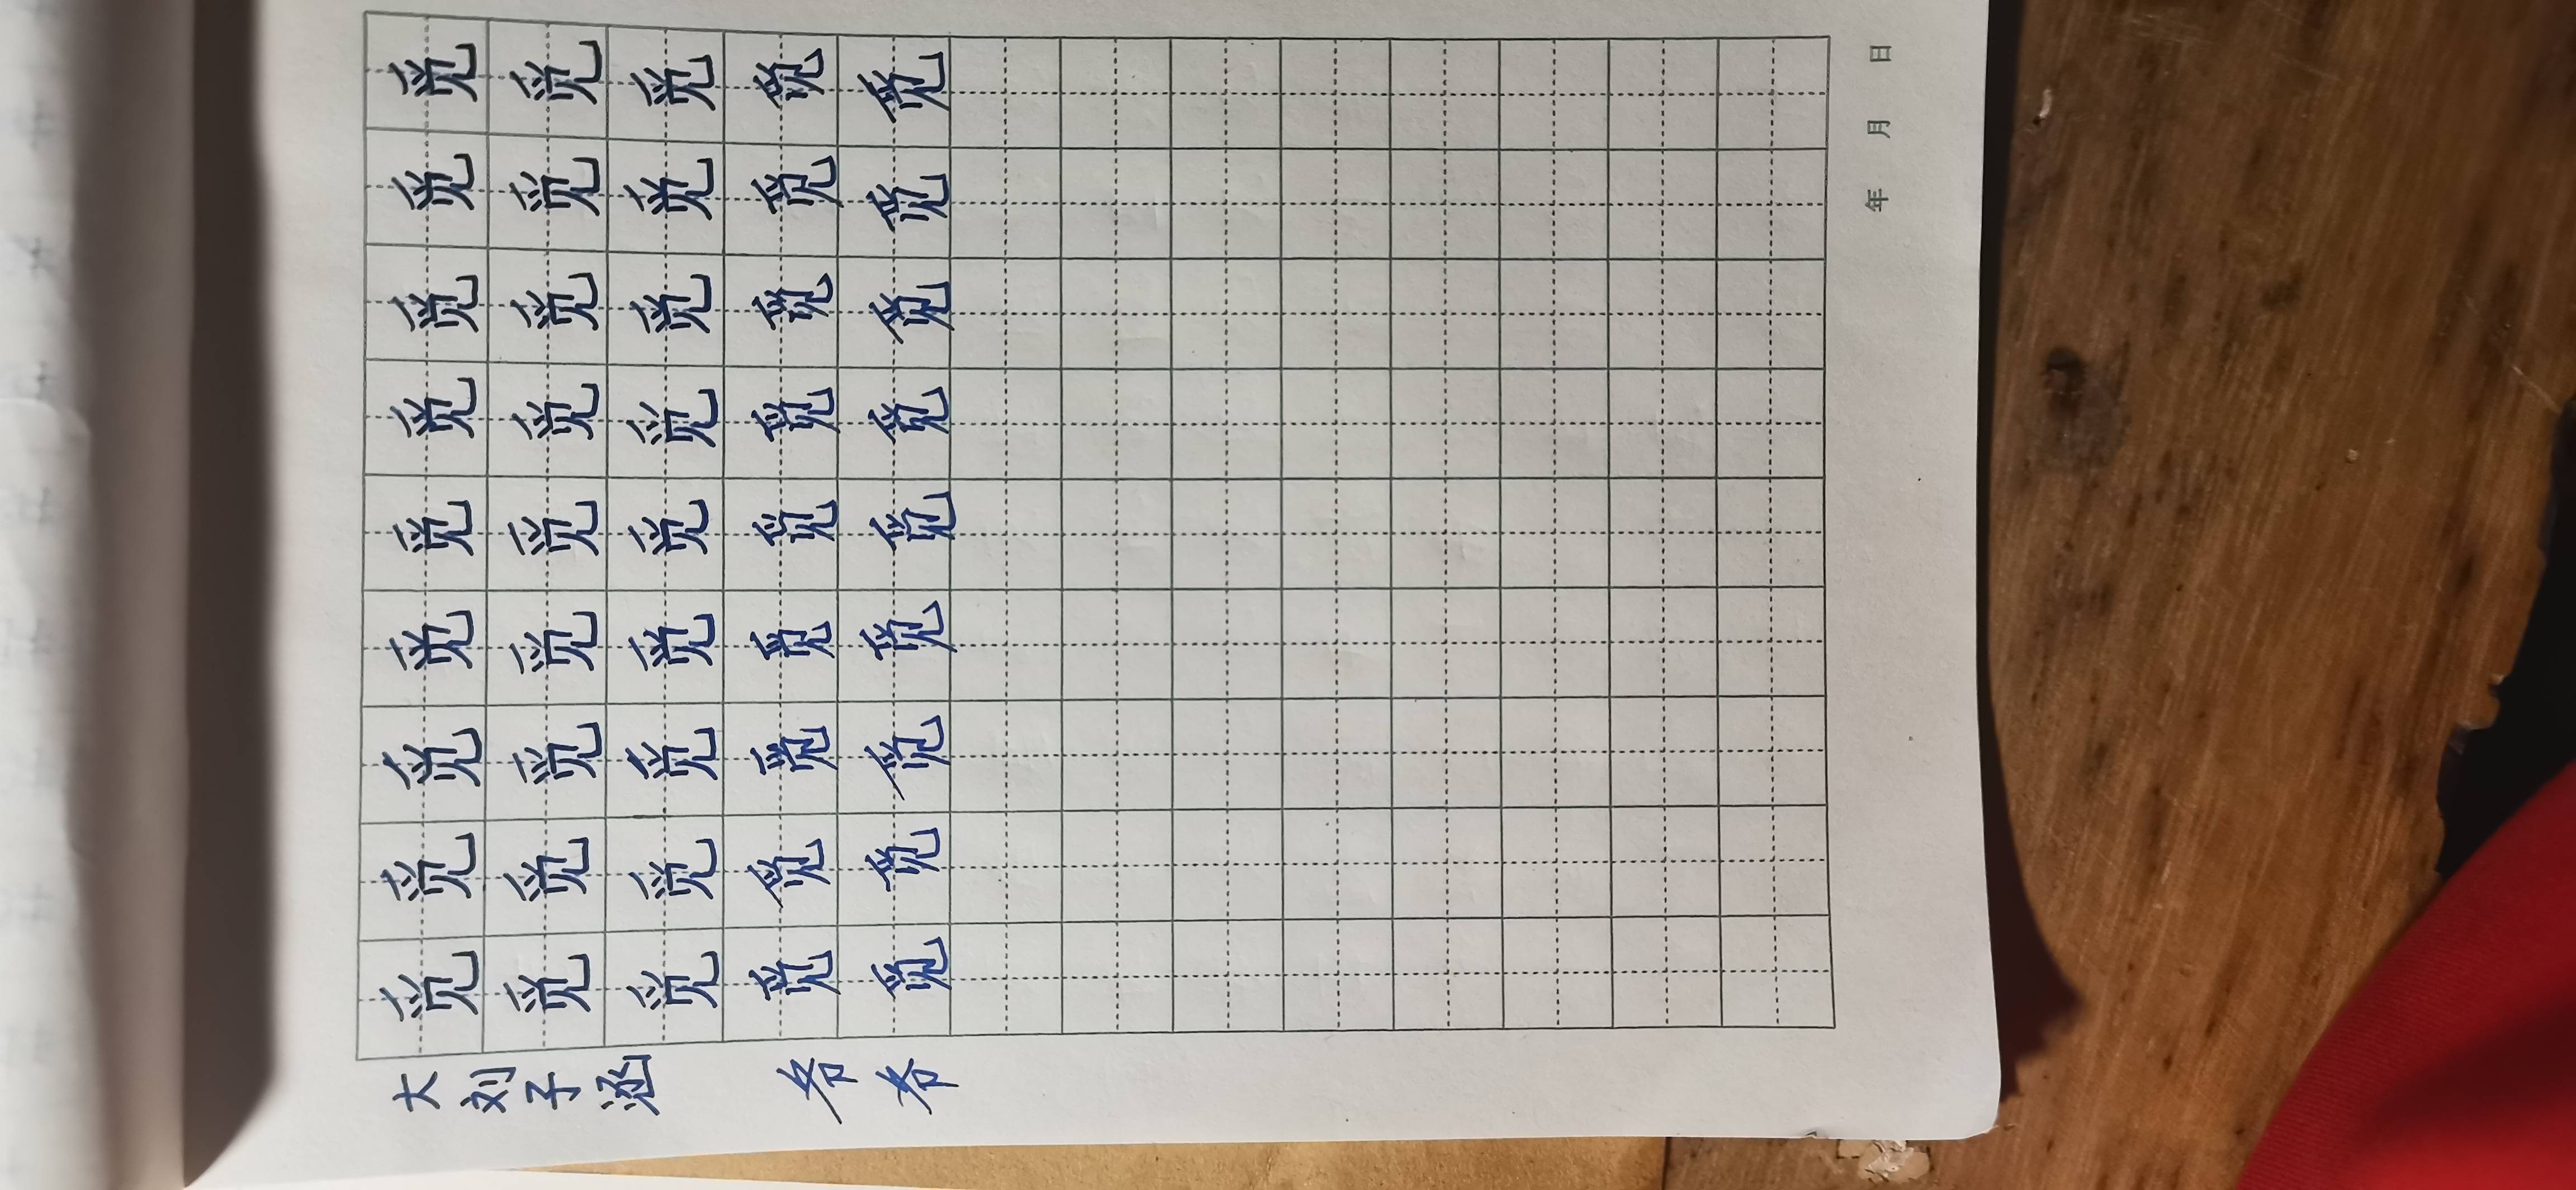 大刘子涵
爷爷
觉觉觉觉觉觉觉觉觉
觉觉觉觉觉觉觉觉觉
觉觉觉觉觉觉觉觉觉
觉觉觉觉觉觉觉觉觉
觉觉觉觉觉觉觉觉觉
年 月 日